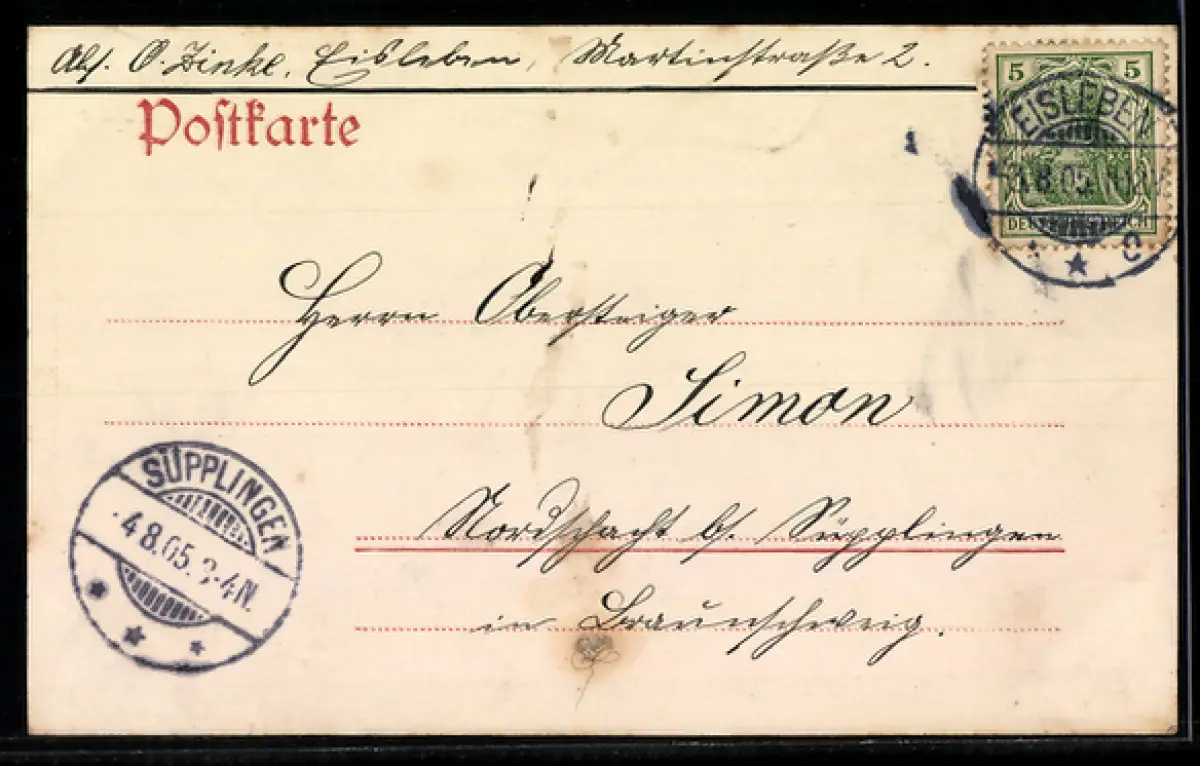 Abs. O. Zinke, Eisleben, Martinstraße 2.
Postkarte
5 5
EISLEBEN
4.8.05.
DEUTSCHES REICH
c
Herrn Obersteiger
Simon
Nordschacht b/. Süpplingen
in Braunschweig.
SÜPPLINGEN
4 8.05. 3-4N.